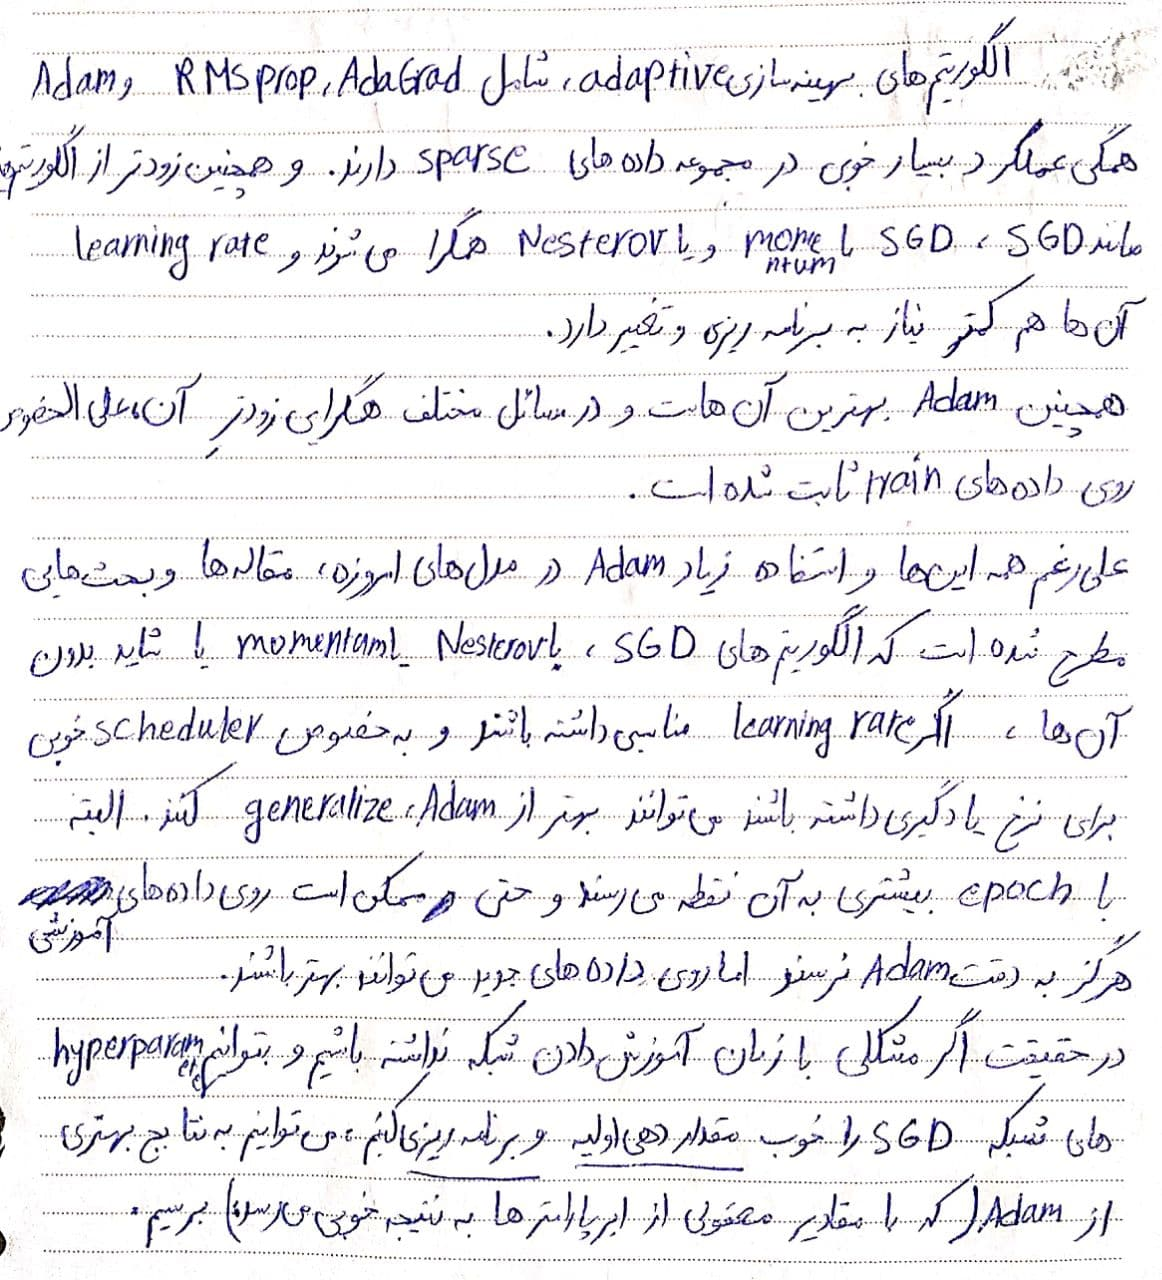 الگوریتم‌های بهینه‌سازی adaptive، شامل AdaGrad، RMSprop و Adam
همگی عملکرد بسیار خوبی در مجموعه داده‌های sparse دارند. و همچنین زودتر از الگوریتم‌های
مانند SGD، SGD با momentum و یا Nesterov همگرا می‌شوند و learning rate
آن‌ها هم کمتر نیاز به برنامه ریزی و تغییر دارد.
همچنین Adam بهترین آن‌هاست و در مسائل مختلف همگرایی زودترِ آن، علی الخصوص
روی داده‌های train ثابت شده است.
علی‌رغم همه این‌ها و استفاده زیاد Adam در مدل‌های امروزه، مقاله‌ها و بحث‌هایی
مطرح شده است که الگوریتم‌های SGD، با Nesterov یا momentum یا شاید بدون
آن‌ها، اگر learning rate مناسبی داشته باشند و به خصوص scheduler خوبی
برای نرخ یادگیری داشته باشند می‌توانند بهتر از Adam، generalize کنند. البته
با epoch بیشتری به آن نقطه می‌رسند و حتی ممکن است روی داده‌های
آموزشی
هرگز به دقت Adam نرسند اما روی داده‌های جدید می‌توانند بهتر باشند.
در حقیقت اگر مشکلی با زمان آموزش دادن شبکه نداشته باشیم و بتوانیم hyperparameter
های شبکه SGD را خوب مقداردهی اولیه و برنامه ریزی کنیم، می‌توانیم به نتایج بهتری
از Adam (که با مقادیر معمولی از ابرپارامترها به نتیجه خوبی می‌رسد) برسیم.